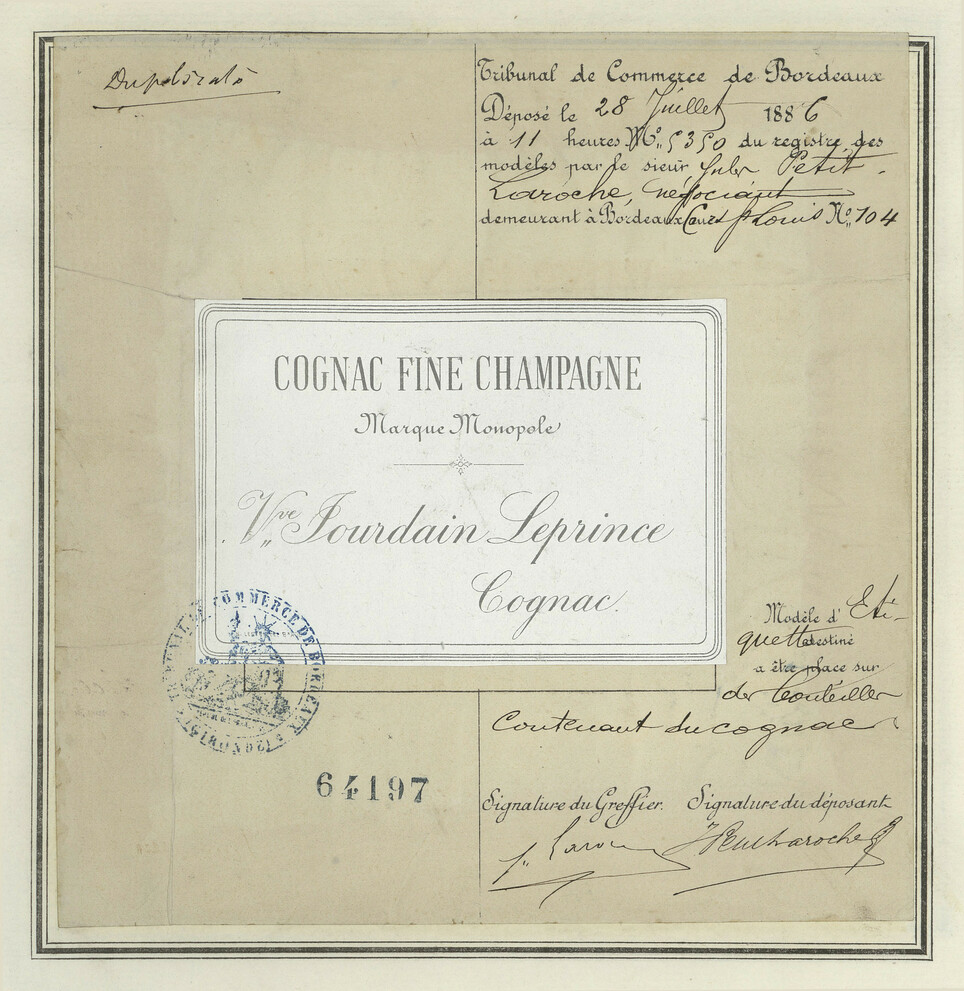 Duplicata
Tribunal de Commerce de Bordeaux
Déposé le 28 Juillet 1886
à 11 heures Nº 5350 du registre des
modèles par le sieur Jules Petit
Laroche, négociant
demeurant à Bordeaux Cours St Louis Nº 104
COGNAC FINE CHAMPAGNE
Marque Monopole
Vve Jourdain Leprince
Cognac.
TRIBUNAL DE COMMERCE DE BORDEAUX
(GIRONDE)
Modèle d' Eti-
quette destiné
a être place sur
des bouteilles
Contenant du cognac
64197
Signature du Greffier. Signature du déposant